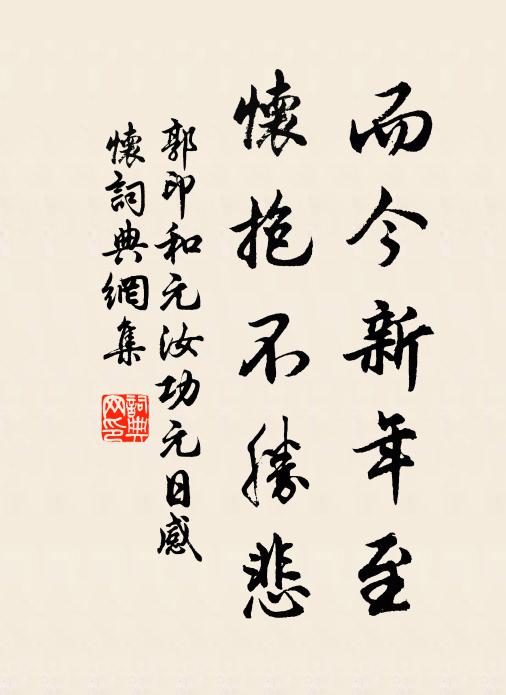 而今新年至
懷抱不勝悲
郭印和元汝功元日感
懷詞典網集
詞典网印